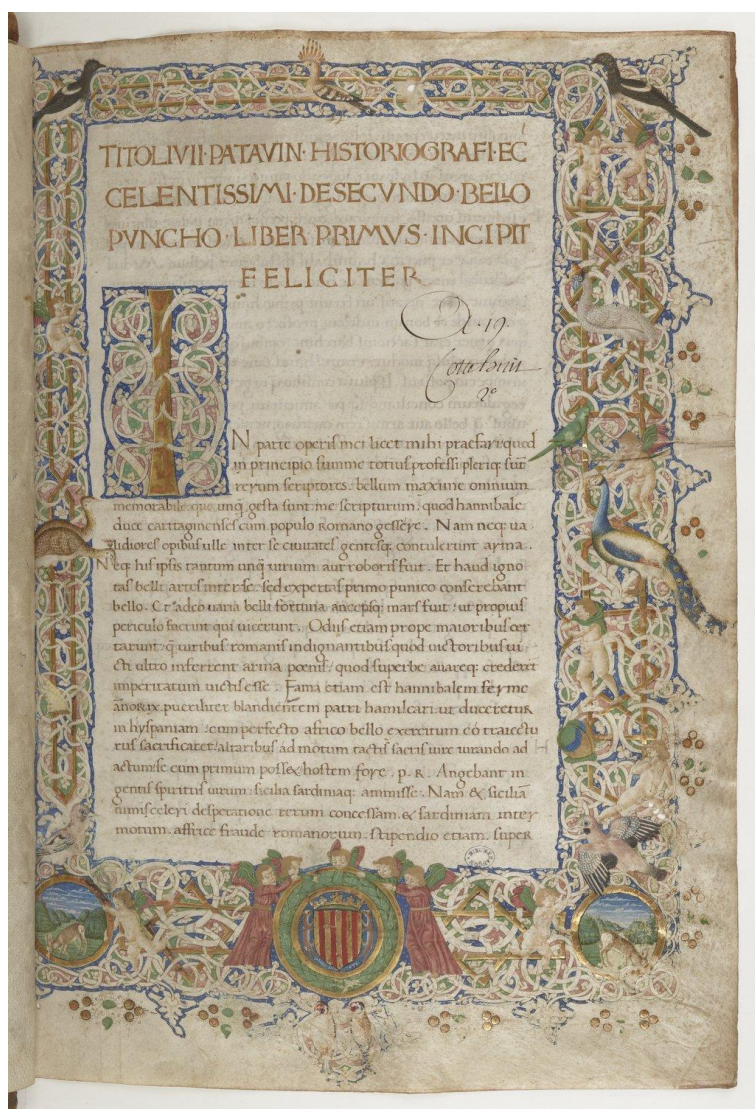 TITOLIVII·PATAVIN·HISTORIOGRAFI·EC
CELENTISSIMI·DESECVNDO·BELLO
PVNCHO·LIBER PRIMVS·INCIPIT
FELICITER
A·19·
Cotte huit
2e
IN parte operis mei licet mihi praefari: quod
in principio summe totius professi pleriq; sūt
rerum scriptores: bellum maxime omnium
memorabile: que unq̄ gesta sunt: me scripturum: quod hannibale
duce cartaginenses cum populo romano gessere. Nam neq; ua
lidiores opibus ulle inter se ciuitates gentesq; contulerunt arma.
Neq; his ipsis tantum unq̄ uirium aut roboris fuit. Et haud igno
tas belli artes inter se: sed expertas primo punico conserebant
bello. Et adeo uaria belli fortuna ancepsq; mars fuit: ut propius
periculo fuerint qui uicerunt. Odiis etiam prope maioribus cer
tarunt: q̄ uiribus romanis indignantibus quod uictoribus ui
cti ultro inferrent arma poenis: quod superbe auareq; crederēt
imperitatum uictis esse. Fama etiam est hannibalem ferme
annor ix. pueriliter blandientem patri hamilcari: ut duceretur
in hyspaniam: cum perfecto africo bello exercitum eo traiectu
rus sacrificaret: altaribus admotum tactis sacris iure iurando ad
actum: se cum primum posset hostem fore. p. R. Angebant in
gentis spiritus uirum: sicilia sardiniaq; ammisse. Nam & siciliā
nimis celeri desperatione rerum concessam. & sardiniam inter
motum. affrice fraude romanorum. stipendio etiam. super